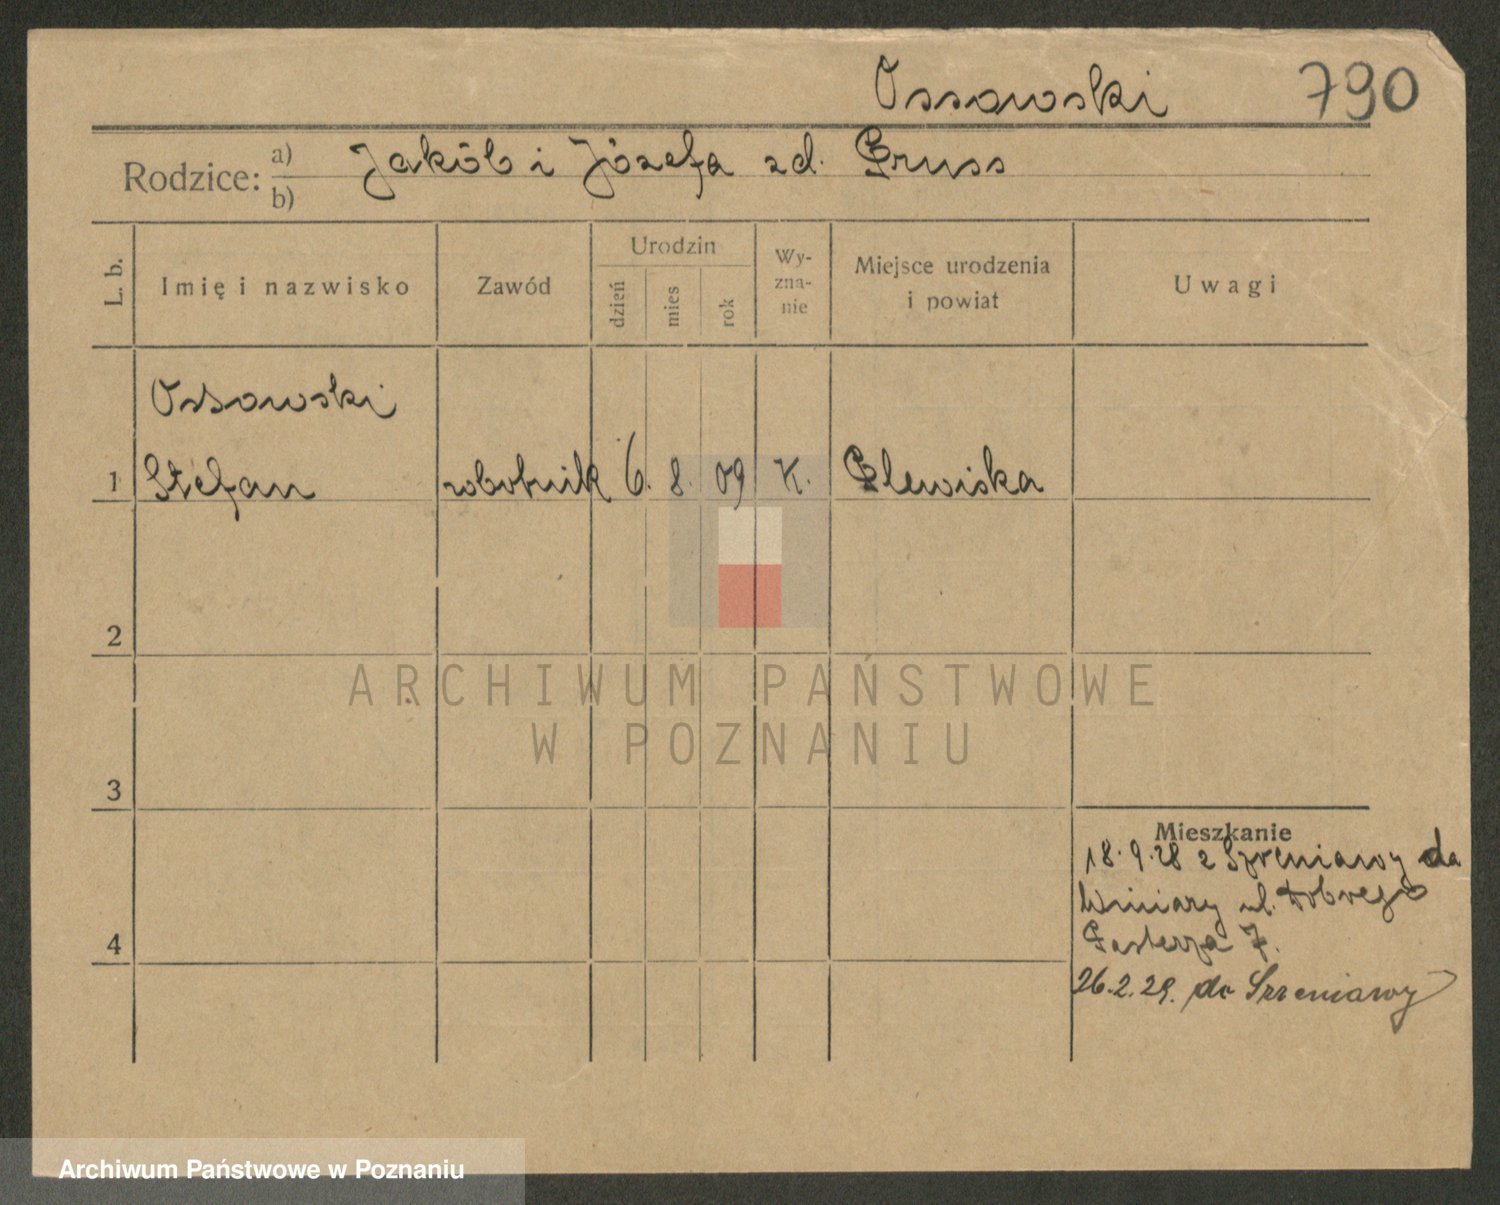 Ossowski 790
Rodzice: a) b) Jakób i Józefa zd. Gruss
L. b.
Imię i nazwisko
Zawód
Urodzin
dzień
mies
rok
Wy-
zna-
nie
Miejsce urodzenia
i powiat
Uwagi
Ossowski
1 Stefan robotnik 6. 8. 09 K. Plewiska
2
3
4
Mieszkanie
18.9.28 z Szreniawy do
Winiary ul. Dobrego
Pasterza 7.
26.2.29. do Szreniawy
ARCHIWUM PAŃSTWOWE
W POZNANIU
Archiwum Państwowe w Poznaniu